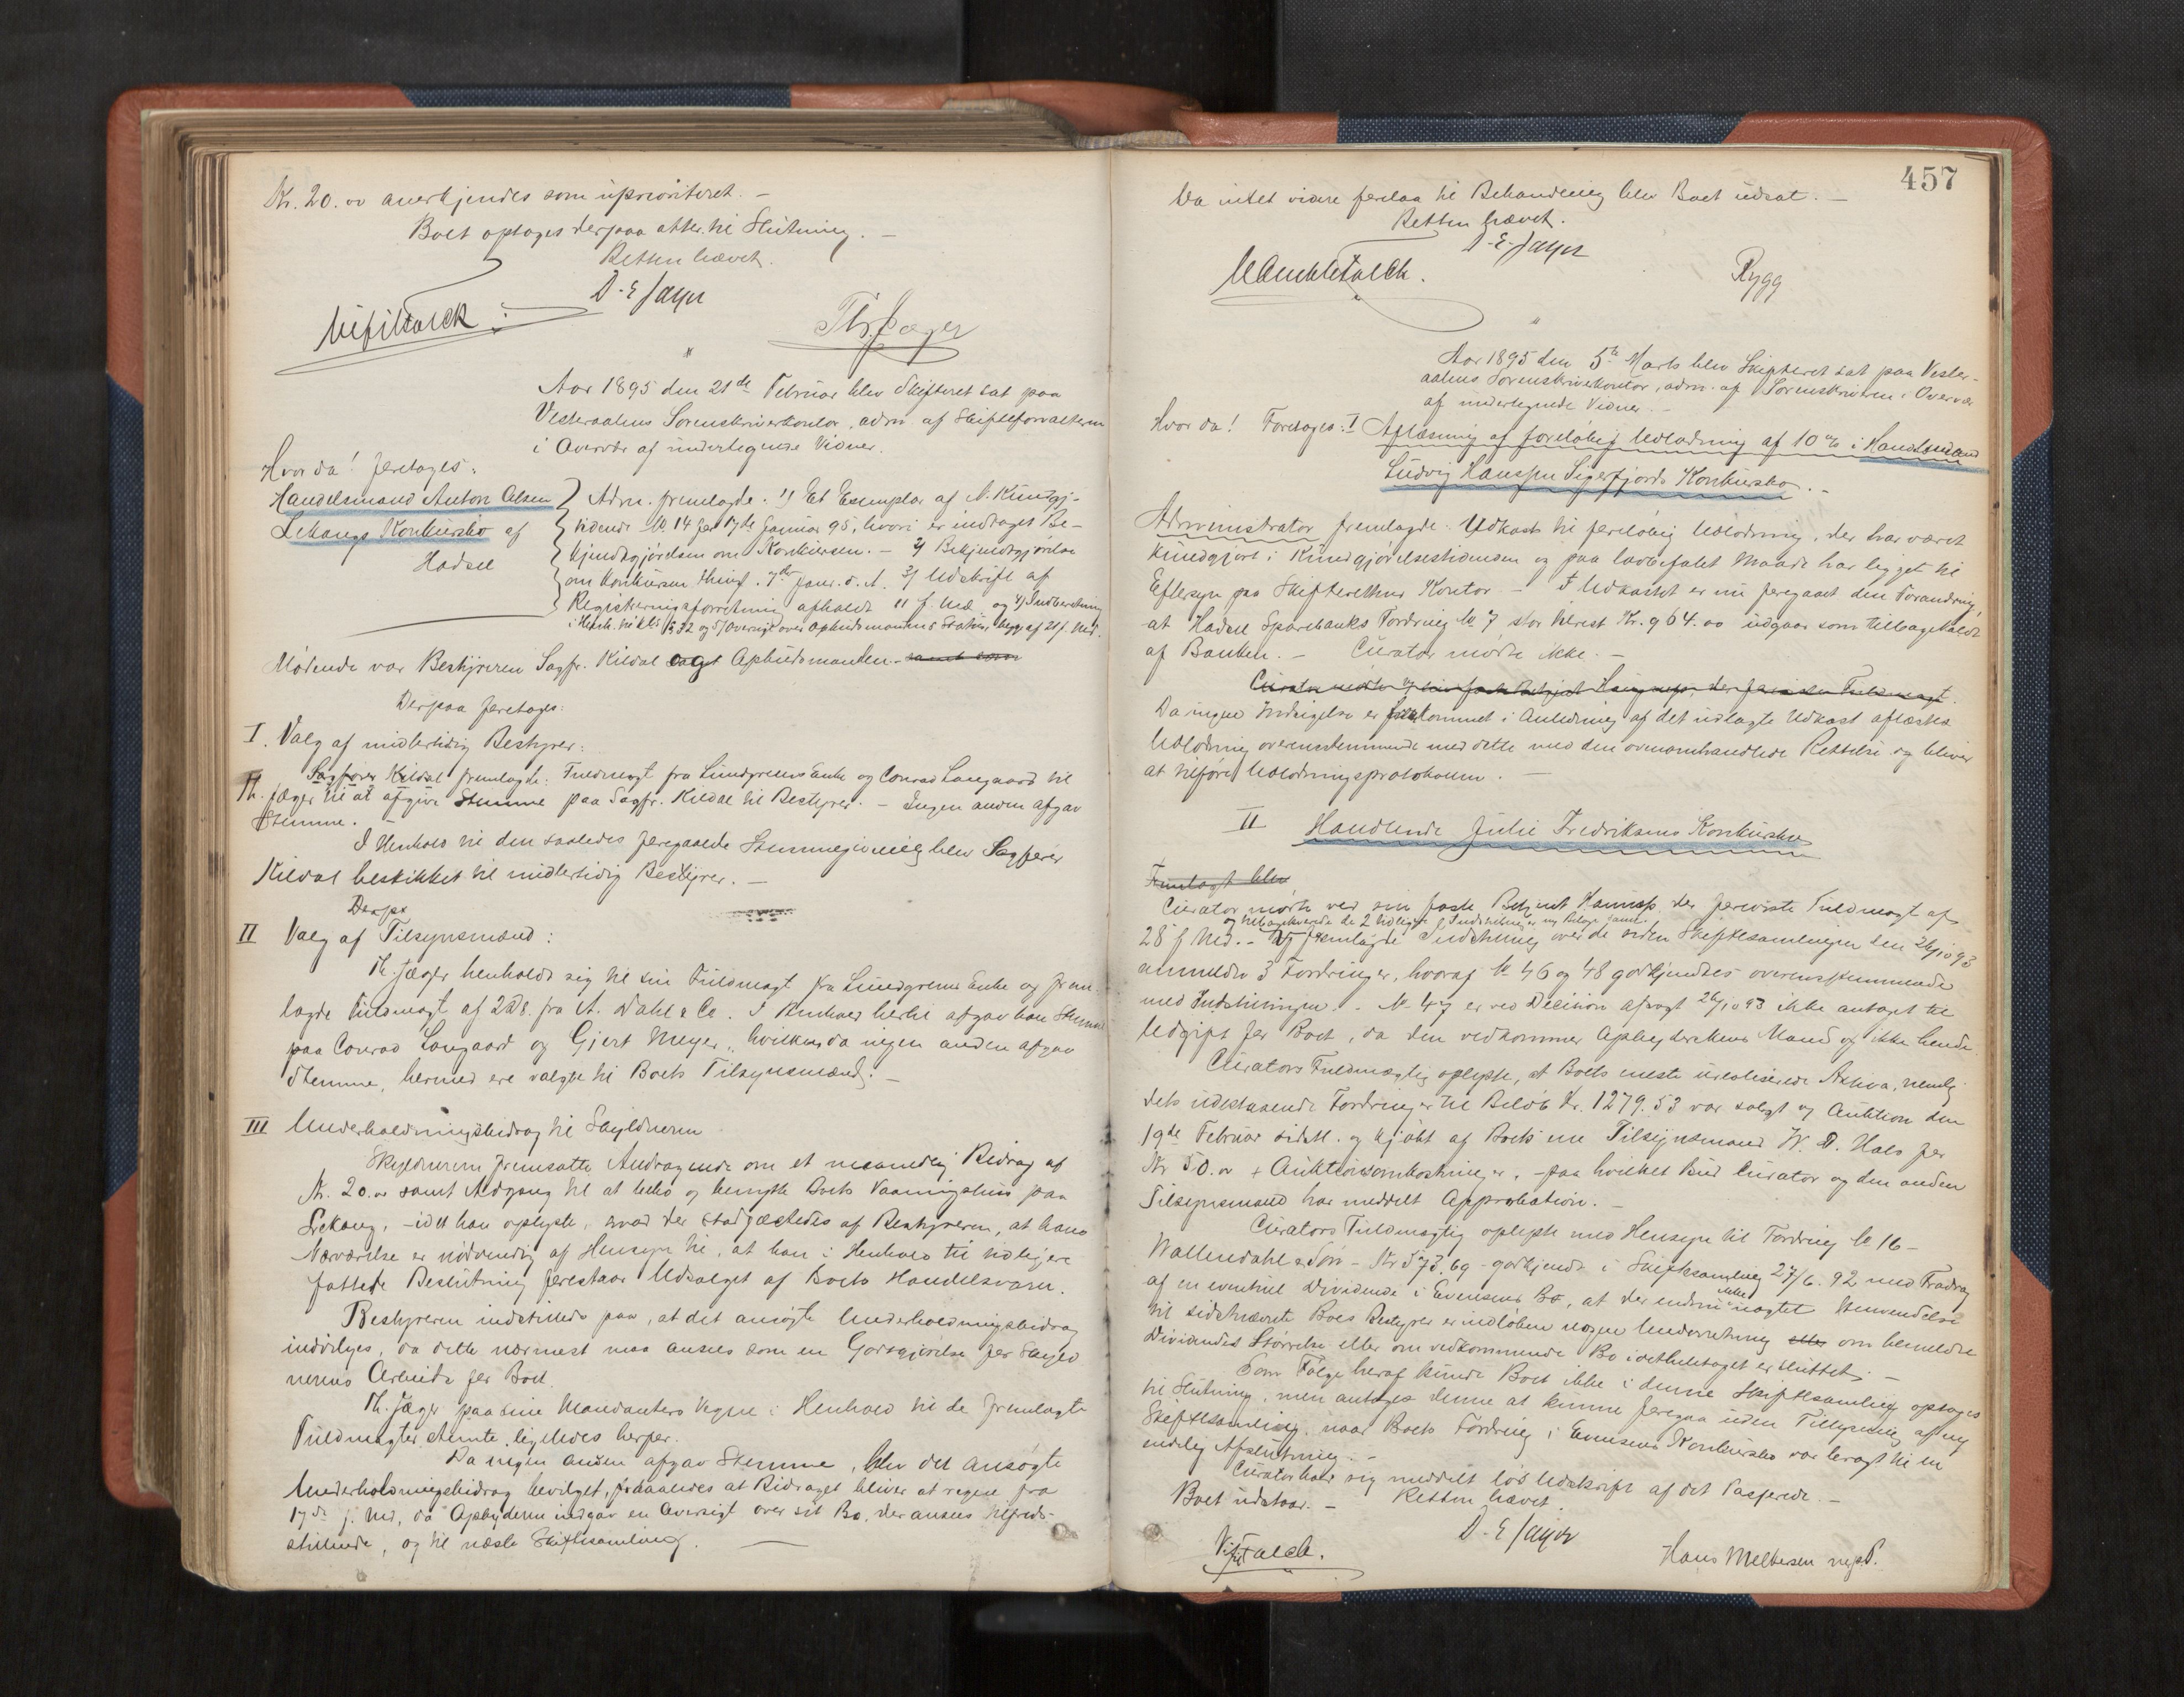 Kr. 20. oo anerkjendes som uprioriteret. —
Boet optages derpaa atter til Slutning. —
Retten hævet.
D. E Jayer
Th. Jæger
Aar 1895 den 21de Februar blev Skifteret sat paa
Vesteraalens Sorenskriverkontor, adm. af Skifteforvalteren
i Overvær af undertegnede Vidner.
Hvor da! foretoges:
Handelsmand Anton Olsen
Lekangs Konkursbo af
Hadsel
Adm. fremlagde. 1) Et Exemplar af N. Kundgj-
tidende No 14 for 17de Januar 95, hvori er indtaget Be-
kjendtgjørelsen om Konkursen. — 2) Bekjendtgjørelse
om Konkursen thingl. 7de Janr. d. A. 3) Udskrift af
Registreringsforretning afholdt 11 f. Md. og 4) Indberetning
i Henh. til kl's § 32 og 5) Oversigt over Opbudsmandens Status, begge af 21 f. Md.
Mødende var Bestyreren Sagfr. Kildal og Opbudsmanden. samt som
Derpaa foretoges:
I. Valg af midlertidig Bestyrer:
Sagfører Kildal fremlagde: Fuldmagt fra Lundgreens Enke og Conrad Langaard til
Th. Jæger til at afgive Stemme paa Sagfr. Kildal til Bestyrer. — Ingen anden afgav
Stemme. —
I Henhold til den saaledes foregaaede Stemmegivning blev Sagfører
Kildal beskikket til midlertidig Bestyrer. —
Derpa
II Valg af Tilsynsmænd:
Th. Jæger henholdt sig til sin Fuldmagt fra Lundgreens Enke og frem-
lagde Fuldmagt af 2 ds. fra A. Dahl & Co. I Henhold hertil afgav han Stemme
paa Conrad Langaard og Gjert Meyer, hvilke, da ingen anden afgav
Stemme, hermed ere valgte til Boets Tilsynsmænd. —
III Underholdningsbidrag til Skyldneren
Skyldneren fremsatte Andragende om et maanedlig Bidrag af
Kr. 20. oo samt Adgang til at bebo og benytte Boets Vaaningshus paa
Lekang, — idet han oplyste, hvad der stadfæstedes af Bestyreren, at hans
Nærværelse er nødvendig af Hensyn til, at han i Henhold til tidligere
fattede Beslutning forestaar Udsalget af Boets Handelsvarer.
Bestyreren indstillede paa, at det ansøgte Underholdningsbidrag
indvilges, da dette nærmest maa ansees som en Godtgjørelse for Skyld
nerens Arbeide for Boet.
Th. Jæger paa sine Mandanters Vegne i Henhold til de fremlagte
Fuldmagter stemte ligeledes herfor.
Da ingen anden afgav Stemme, blev det ansøgte
Underholdningsbidrag bevilget, saaledes at Bidraget bliver at regne fra
17de f. Md, da Opbyderen indgav en Oversigt over sit Bo, der ansees tilfreds-
stillende, og til næste Skiftesamling. —
457
Da intet videre forelaa til Behandling blev Boet udsat. —
Retten hævet.
D. E. Jayer
Rygg
Aar 1895 den 5te Marts blev Skifteret sat paa Vester-
aalens Sorenskriverkontor, adm. af Sorenskriveren i Overvær
af undertegnede Vidner. —
Hvor da! Foretoges: I Aflæsning af foreløbig Udlodning af 10 % i Handelsmand
Ludvig Hanssen Sigerfjords Konkursbo. —
Administrator fremlagde: Udkast til foreløbig Udlodning, der har været
kundgjort i Kundgjørelsestidenden og paa lovbefalet Maade har ligget til
Eftersyn paa Skifterettens Kontor. — I Udkastet er nu foregaaet den Forandring,
at Hadsel Sparebanks Fordring No 7 stor tilrest Kr. 964. oo udgaar som tilbagekaldt
af Banken. — Curator mødte ikke. —
Da ingen Indsigelse er fremkommet i Anledning af det udlagte Udkast aflæstes
Udlodning overensstemmende med dette med den ovenomhandlede Rettelse og bliver
at tilføre Udlodningsprotokollen. —
II Handlende Julie Fredriksens Konkursbo
Fremlagt blev
Curator mødte ved sin faste Betjent Hannes der foreviste Fuldmagt af
og tilbageleverede de 2 tidligere Indstillinger
28 f. Md. — Fremlagde Indstilling over de siden Skiftesamlingen den 26/10 93
anmeldte 3 Fordringer, hvoraf No 46 og 48 godkjendtes overensstemmende
med Indstillingen. No 47 er ved Decision afsagt 26/10 93 ikke antaget til
Udgift for Boet, da den vedkommer Opbyderskens Mand og ikke hende.
Curators Fuldmægtig oplyste, at Boets meste urealiserede Aktiva, nemlig
dets udestaaende Fordringer til Beløb Kr. 1279.53 var solgt v. Auktion den
19de Februar sidstl. og kjøbt af Boets ene Tilsynsmand W. D. Hals for
Kr 50. oo + Auktionsomkostninger, — paa hvilket Bud Curator og den anden
Tilsynsmand har meddelt Approbation. —
Curators Fuldmægtig oplyste med Hensyn til Fordring No 16 —
Wallendahl & Søn — Kr 573.69 — godkjendt i Skiftesamling 27/6. 92 med Fradrag
af en eventuel Dividende i Evensens Bo, at der endnu ikke uagtet Henvendelse
til sidstnævnte Boes Bestyrer er indløben nogen Underretning eller om bemeldte
Dividendes Størrelse eller om vedkommende Bo i det hele taget er sluttet. —
Som Følge heraf kunde Boet ikke i denne Skiftesamling optages
til Slutning, men antages denne at kunne foregaa uden Tillysning af ny
Skiftesamling, naar Boets Fordring i Evensens Konkursbo var bragt til en
endelig Afslutning. —
Curator bad sig meddelt løs Udskrift af det Passerede. —
Boet udstaar. — Retten hævet.
D. E Jayer
Hans Meltesen